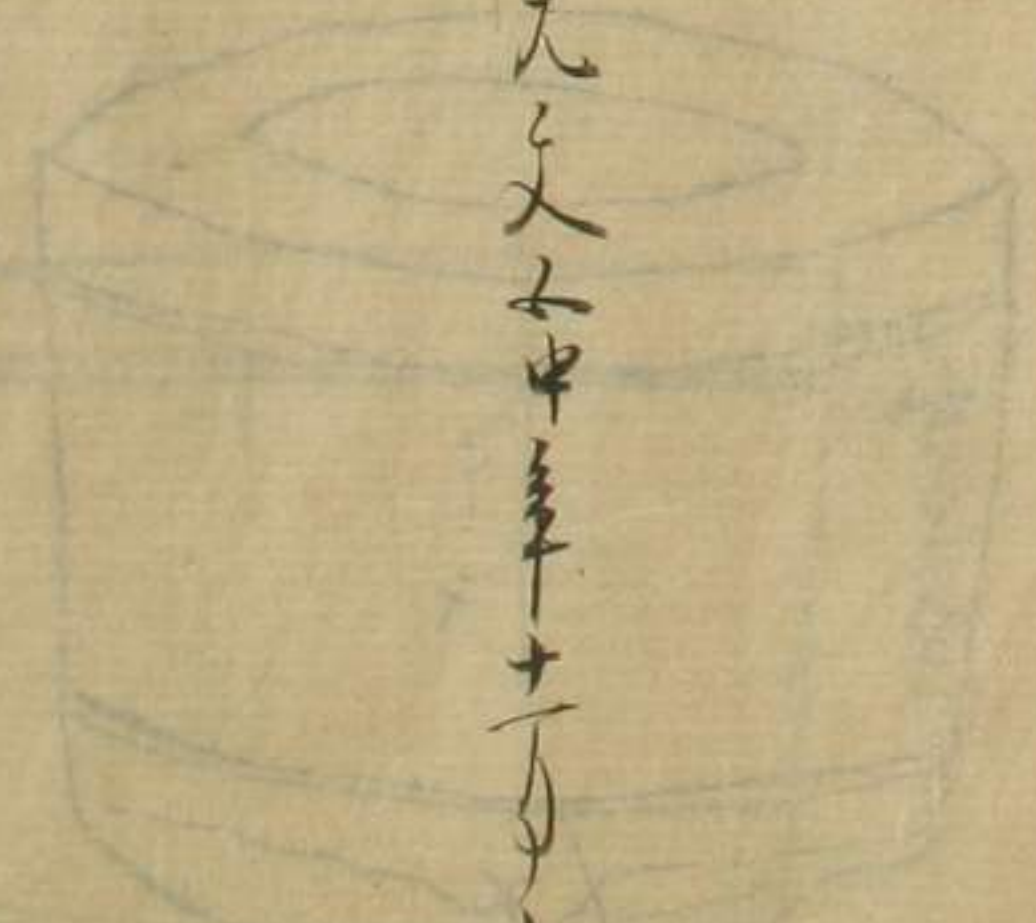 元文五申年十一月